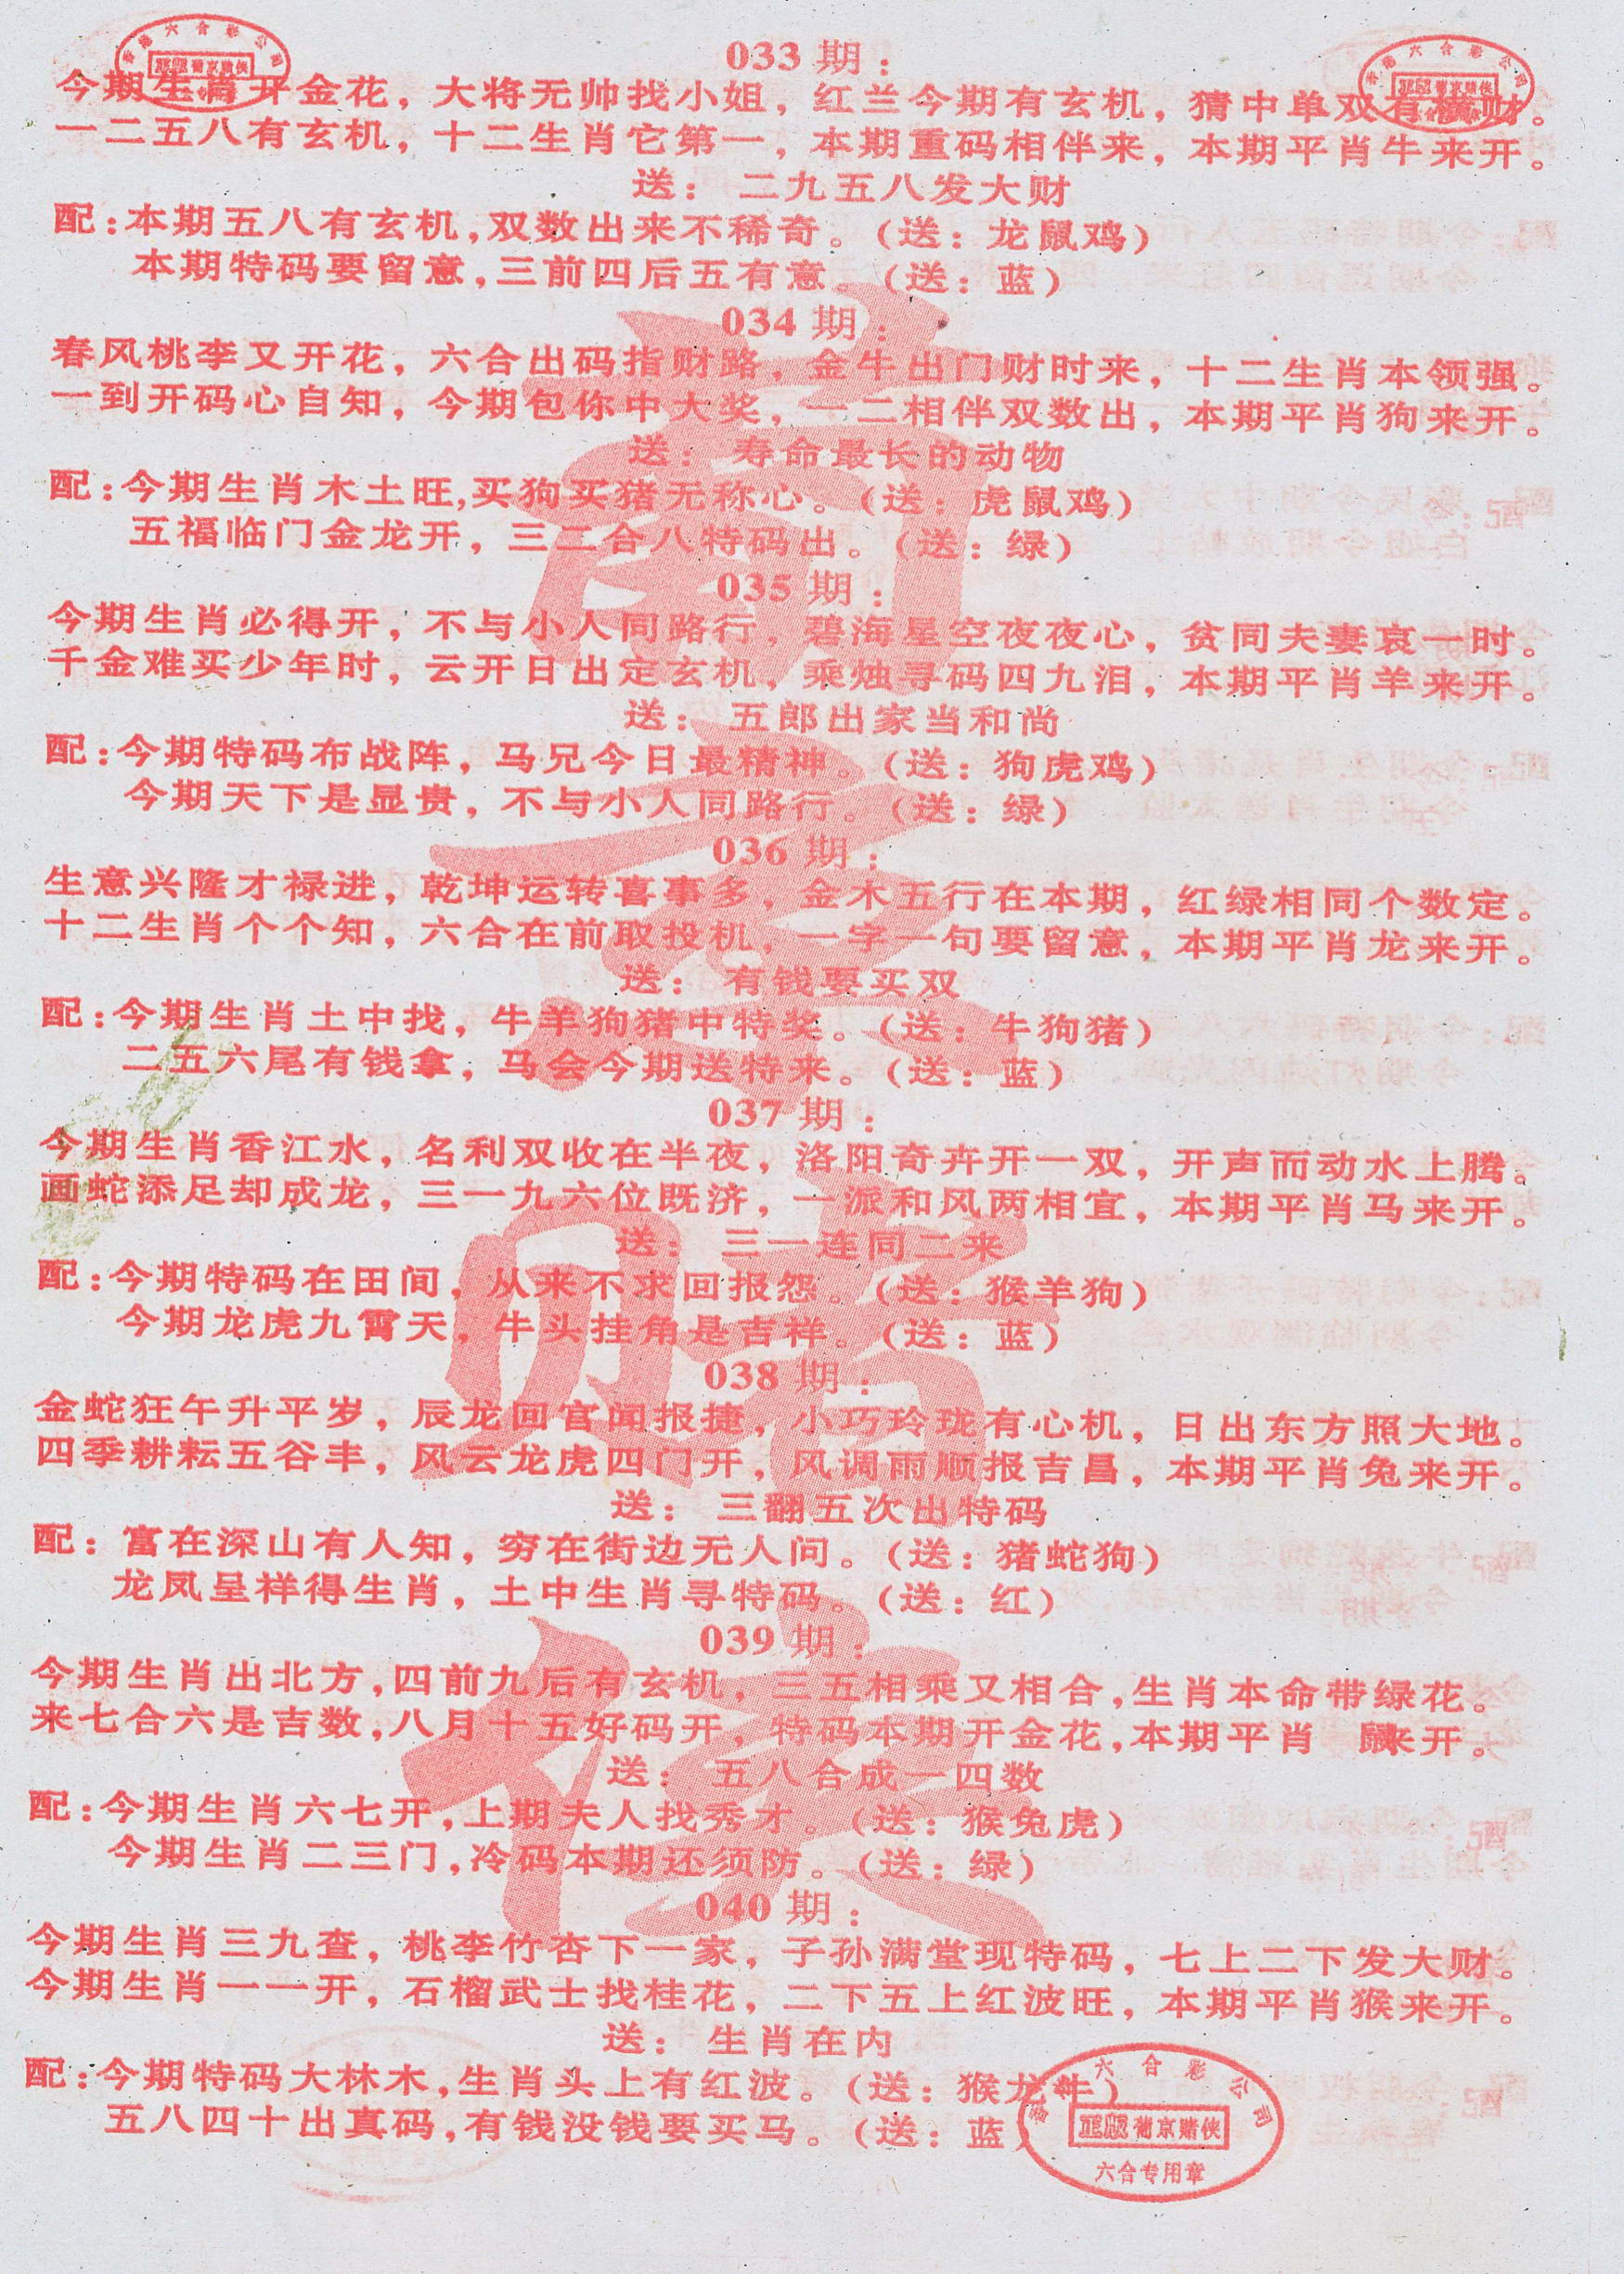 033期：
今期生肖开金花，大将无帅找小姐，红兰今期有玄机，猜中单双有横财。
一二五八有玄机，十二生肖它第一，本期重码相伴来，本期平肖牛来开。
送：二九五八发大财
配：本期五八有玄机，双数出来不稀奇。（送：龙鼠鸡）
本期特码要留意，三前四后五有意。（送：蓝）
034期：
春风桃李又开花，六合出码指财路，金牛出门财时来，十二生肖本领强。
一到开码心自知，今期包你中大奖，一二相伴双数出，本期平肖狗来开。
送：寿命最长的动物
配：今期生肖木土旺，买狗买猪无称心。（送：虎鼠鸡）
五福临门金龙开，三二合八特码出。（送：绿）
035期：
今期生肖必得开，不与小人同路行，碧海星空夜夜心，贫同夫妻哀一时。
千金难买少年时，云开日出定玄机，乘烛寻码四九泪，本期平肖羊来开。
送：五郎出家当和尚
配：今期特码布战阵，马兄今日最精神。（送：狗虎鸡）
今期天下是显贵，不与小人同路行。（送：绿）
036期：
生意兴隆才禄进，乾坤运转喜事多，金木五行在本期，红绿相同个数定。
十二生肖个个知，六合在前取投机，一字一句要留意，本期平肖龙来开。
送：有钱要买双
配：今期生肖土中找，牛羊狗猪中特奖。（送：牛狗猪）
二五六尾有钱拿，马会今期送特来。（送：蓝）
037期：
今期生肖香江水，名利双收在半夜，洛阳奇卉开一双，开声而动水上腾。
画蛇添足却成龙，三一九六位既济，一派和风两相宜，本期平肖马来开。
送：三一连同二来
配：今期特码在田间，从来不求回报怨。（送：猴羊狗）
今期龙虎九霄天，牛头挂角是吉祥。（送：蓝）
038期：
金蛇狂午升平岁，辰龙回官闻报捷，小巧玲珑有心机，日出东方照大地。
四季耕耘五谷丰，风云龙虎四门开，风调雨顺报吉昌，本期平肖兔来开。
送：三翻五次出特码
配：富在深山有人知，穷在街边无人问。（送：猪蛇狗）
龙凤呈祥得生肖，土中生肖寻特码。（送：红）
039期：
今期生肖出北方，四前九后有玄机，三五相乘又相合，生肖本命带绿花。
来七合六是吉数，八月十五好码开，特码本期开金花，本期平肖 鼠来开。
送：五八合成一四数
配：今期生肖六七开，上期夫人找秀才。（送：猴兔虎）
今期生肖二三门，冷码本期还须防。（送：绿）
040期：
今期生肖三九查，桃李竹杏下一家，子孙满堂现特码，七上二下发大财。
今期生肖一一开，石榴武士找桂花，二下五上红波旺，本期平肖猴来开。
送：生肖在内
配：今期特码大林木，生肖头上有红波。（送：猴龙牛）
五八四十出真码，有钱没钱要买马。（送：蓝）
葡京赌侠
香港六合彩公司
正版葡京赌侠
六合专用章